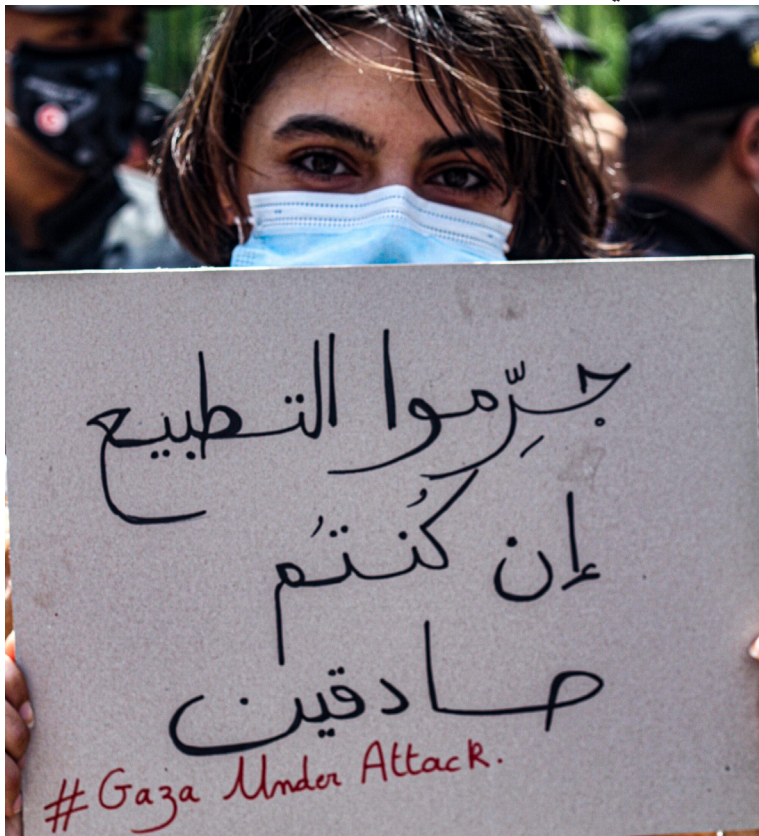 جرِّموا التطبيع
إن كُنتُم
صادقين
#Gaza Under Attack.